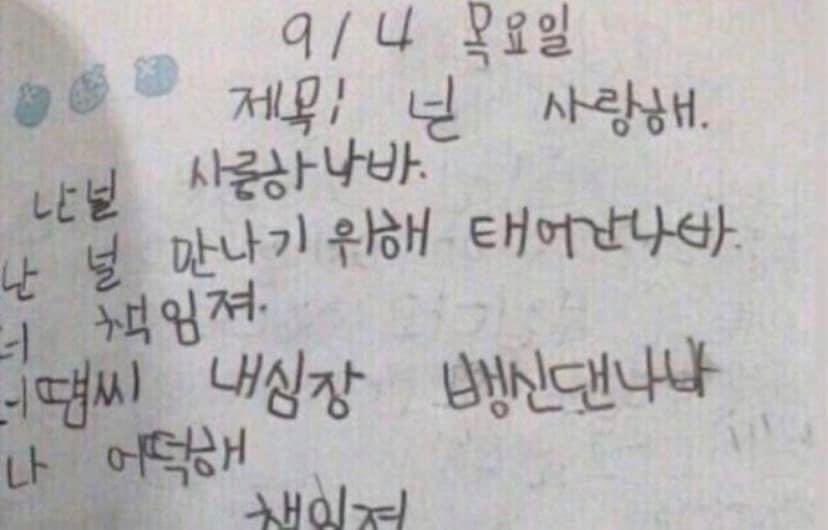 9/4 목요일
제목! 넌 사랑해.
난널 사릉하나바.
난 널 만나기 위해 태어난나바.
너 책임져.
너땜씨 내심장 뱅신댄나바
나 어떡해
책임져